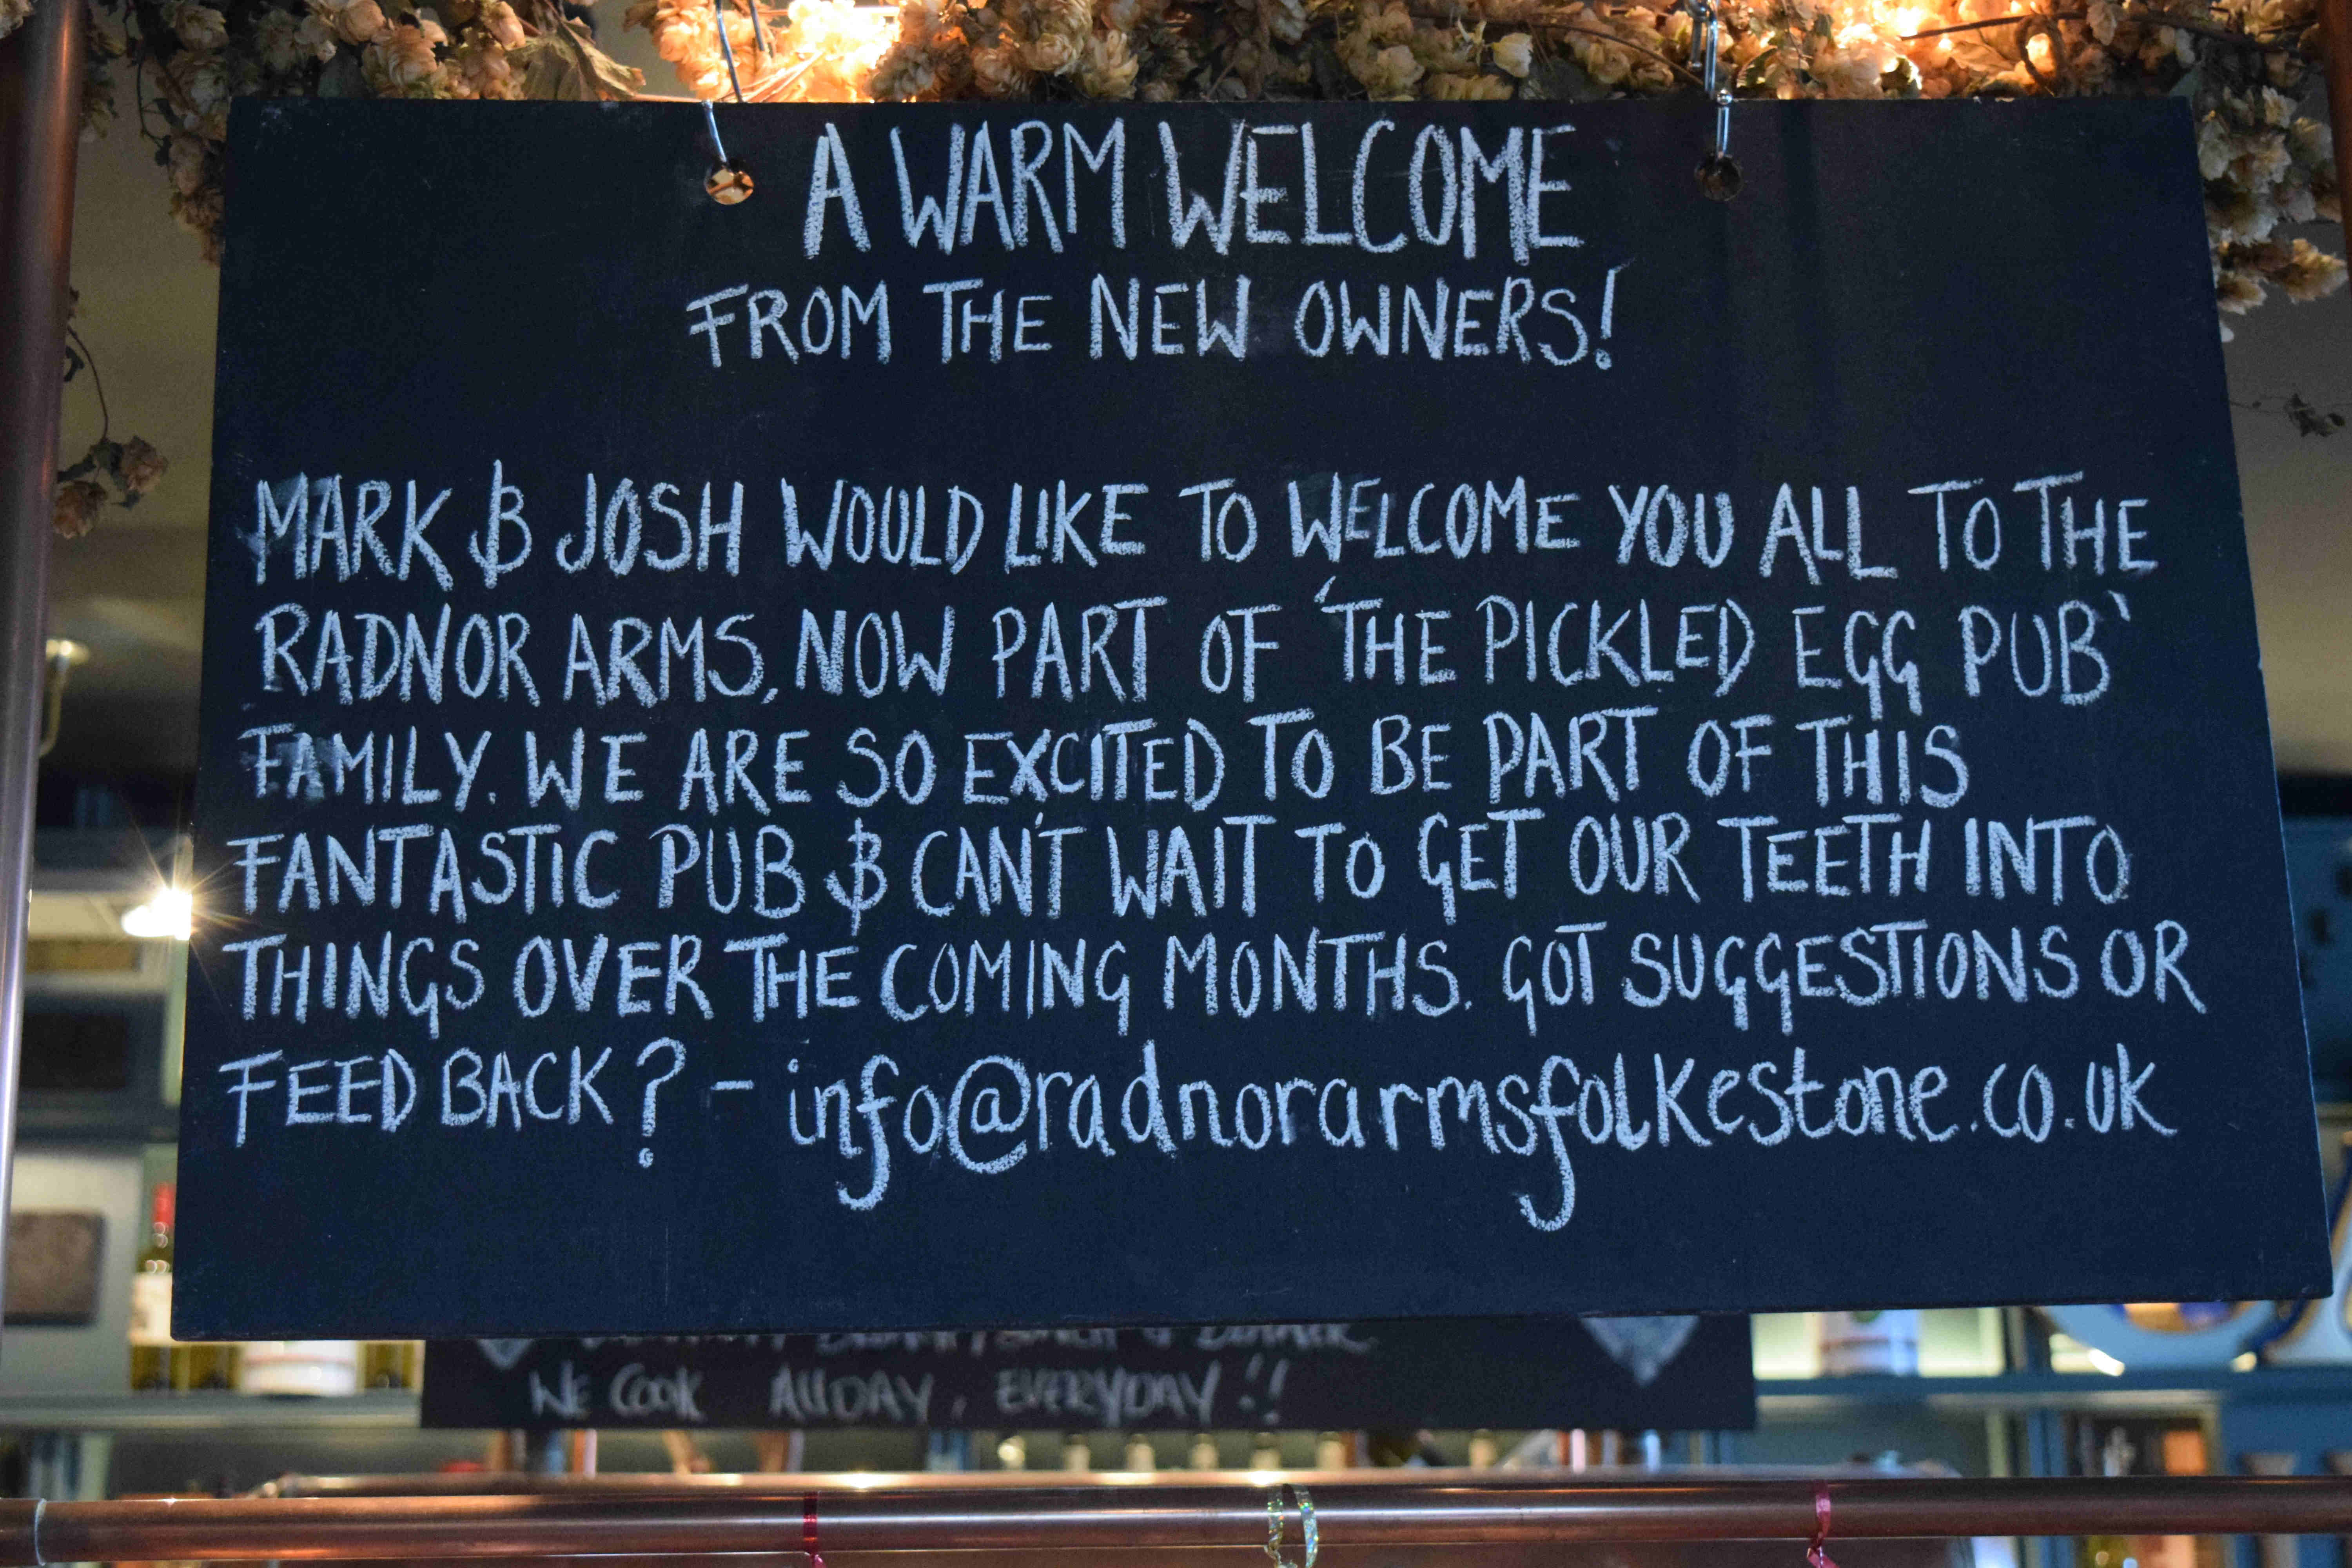 A WARM WELCOME
FROM THE NEW OWNERS!
MARK & JOSH WOULD LIKE TO WELCOME YOU ALL TO THE
RADNOR ARMS, NOW PART OF 'THE PICKLED EGG PUB'
FAMILY. WE ARE SO EXCITED TO BE PART OF THIS
FANTASTIC PUB & CAN'T WAIT TO GET OUR TEETH INTO
THINGS OVER THE COMING MONTHS. GOT SUGGESTIONS OR
FEED BACK? - info@radnorarmsfolkestone.co.uk
WE COOK ALL DAY, EVERYDAY!!